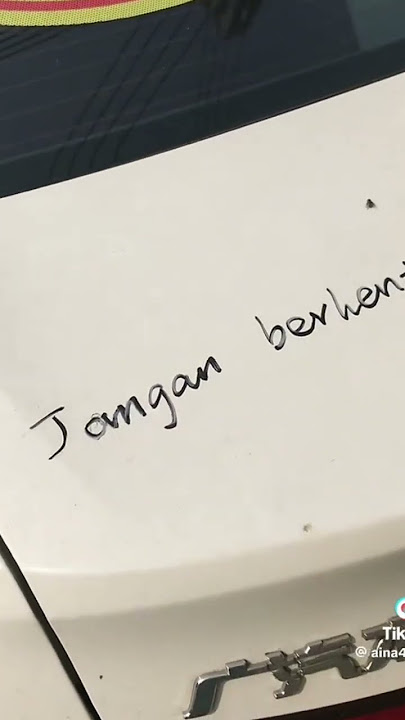 Jangan berhent
Tik
@ aina4